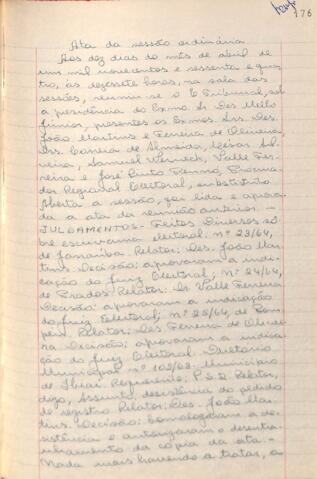 176
Ata da sessão ordinária
Aos dez dias do mês de abril de
um mil novecentos e sessenta e qua-
tro, às dezessete horas, na sala das
sessões, reuniu-se o E. Tribunal, sob
a presidência do Exmo. Sr. Des. Mello
Júnior, presentes os Exmos. Srs. Des.
João Martins e Ferreira de Oliveira,
Drs. Correia de Almeida, César Sil-
veira, Samuel Werneck, Valle Fer-
reira e José Pinto Renó, Procura-
dor Regional Eleitoral, substituto.
Aberta a sessão, foi lida e aprova-
da a ata da reunião anterior. -
JULGAMENTOS. Feitos Diversos so-
bre escrivania eleitoral: nº 23/64,
de Janaúba. Relator: Des. João Mar-
tins. Decisão: aprovaram a indi-
cação do juiz Eleitoral; nº 24/64,
de Prados. Relator: Dr. Valle Ferreira
Decisão: aprovaram a indicação
do juiz Eleitoral; nº 25/64, de Pom-
péu. Relator: Des. Ferreira de Olivei-
ra. Decisão: aprovaram a indica-
ção do juiz Eleitoral. Diretório
Municipal nº 102/63. Município
de Ibiaí. Requerente: P.S.D. Relator,
digo, Assunto: desistência do pedido
de registro. Relator: Des. João Mar-
tins. Decisão: homologaram a de-
sistência e autorizaram o desentra-
nhamento da cópia da ata. -
Nada mais havendo a tratar, o